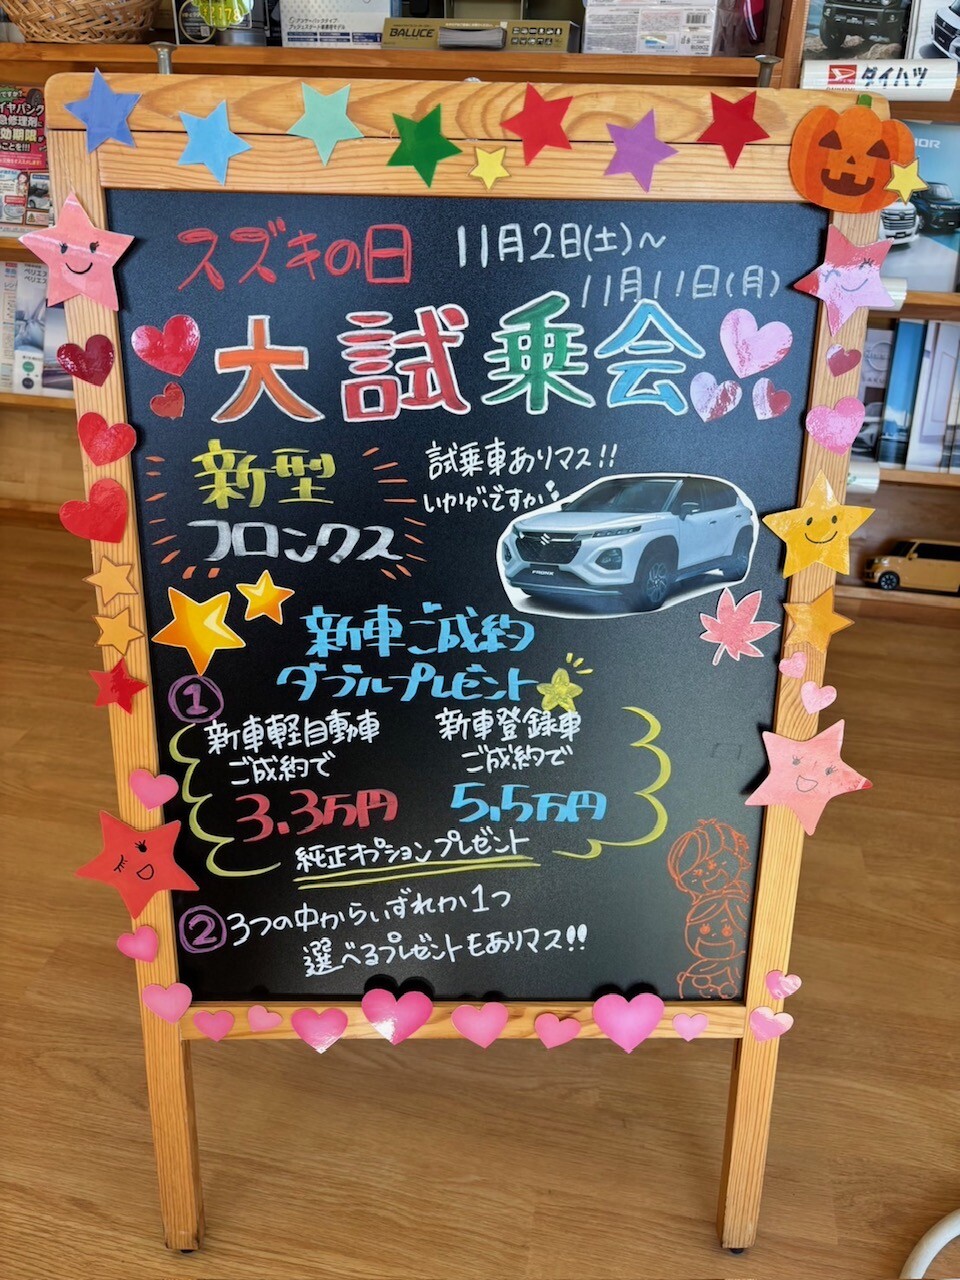 BALUCE
ダイハツ
スズキの日
11月2日(土)~
11月11日(月)
大試乗会
新型
フロンクス
試乗車ありマス!!
いかがですか
FRONX
新車ご成約
ダブルプレゼント
1
新車軽自動車
ご成約で
3.3万円
新車登録車
ご成約で
5.5万円
純正オプションプレゼント
2 3つの中からいずれか1つ
選べるプレゼントもありマス!!